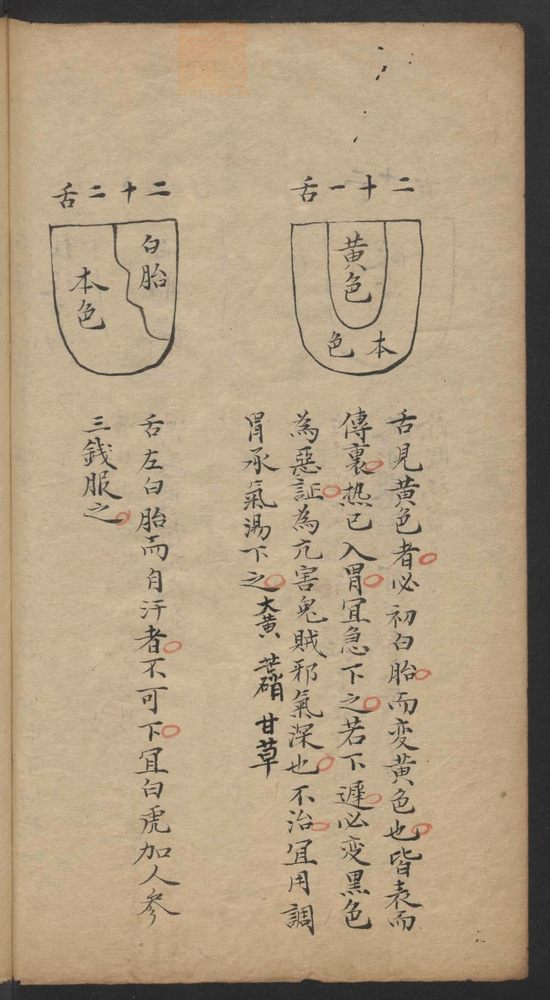 二十一舌
黃色
本色
舌見黃色者必初白胎而变黃色也皆表而
傳裏热已入胃宜急下之若下遲必变黑色
為惡証為亢害鬼賊邪氣深也不治宜用調
胃承氣湯下之大黃 芒硝 甘草
二十二舌
白胎
本色
舌左白胎而自汗者不可下宜白虎加人參
三錢服之